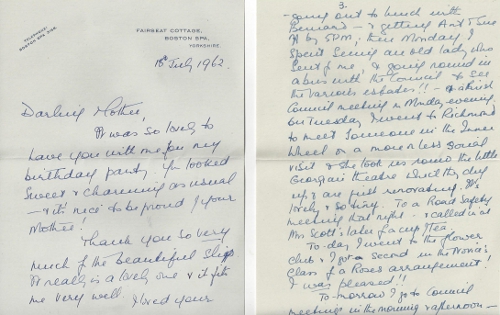 TELEPHONE:
BOSTON SPA
FAIRSEAT COTTAGE,
BOSTON SPA,
YORKSHIRE.
18th July 1962.
Darling Mother,
It was so lovely to
have you with me for my
birthday party. You looked
sweet & charming as usual
- & it's nice to be proud of your
Mother!
Thank you so very
much for the beautiful slip
It really is a lovely one & it fits
me very well. I loved your
3.
- going out to lunch with
Bernard - & getting
by 5PM; then Monday I
spent seeing an old lady who
sent for me, & going round in
a bus with the Council to see
the various estates!! - & a
Council meeting on Monday evening,
on Tuesday I went to Richmond
to meet someone in the Inner
Wheel on a more or less social
visit & she took us round the little
Georgian theatre which they dug
up & are just renovating. It's
lovely & so tiny. To a Road Safety
meeting that night - & called in at
Mrs Scott's later for a cup of Tea.
To-day I went to the flower
club & I got a second in the
Class of a Roses arrangement!
I was pleased!!
To-morrow I go to Council
meeting in the morning & afternoon -